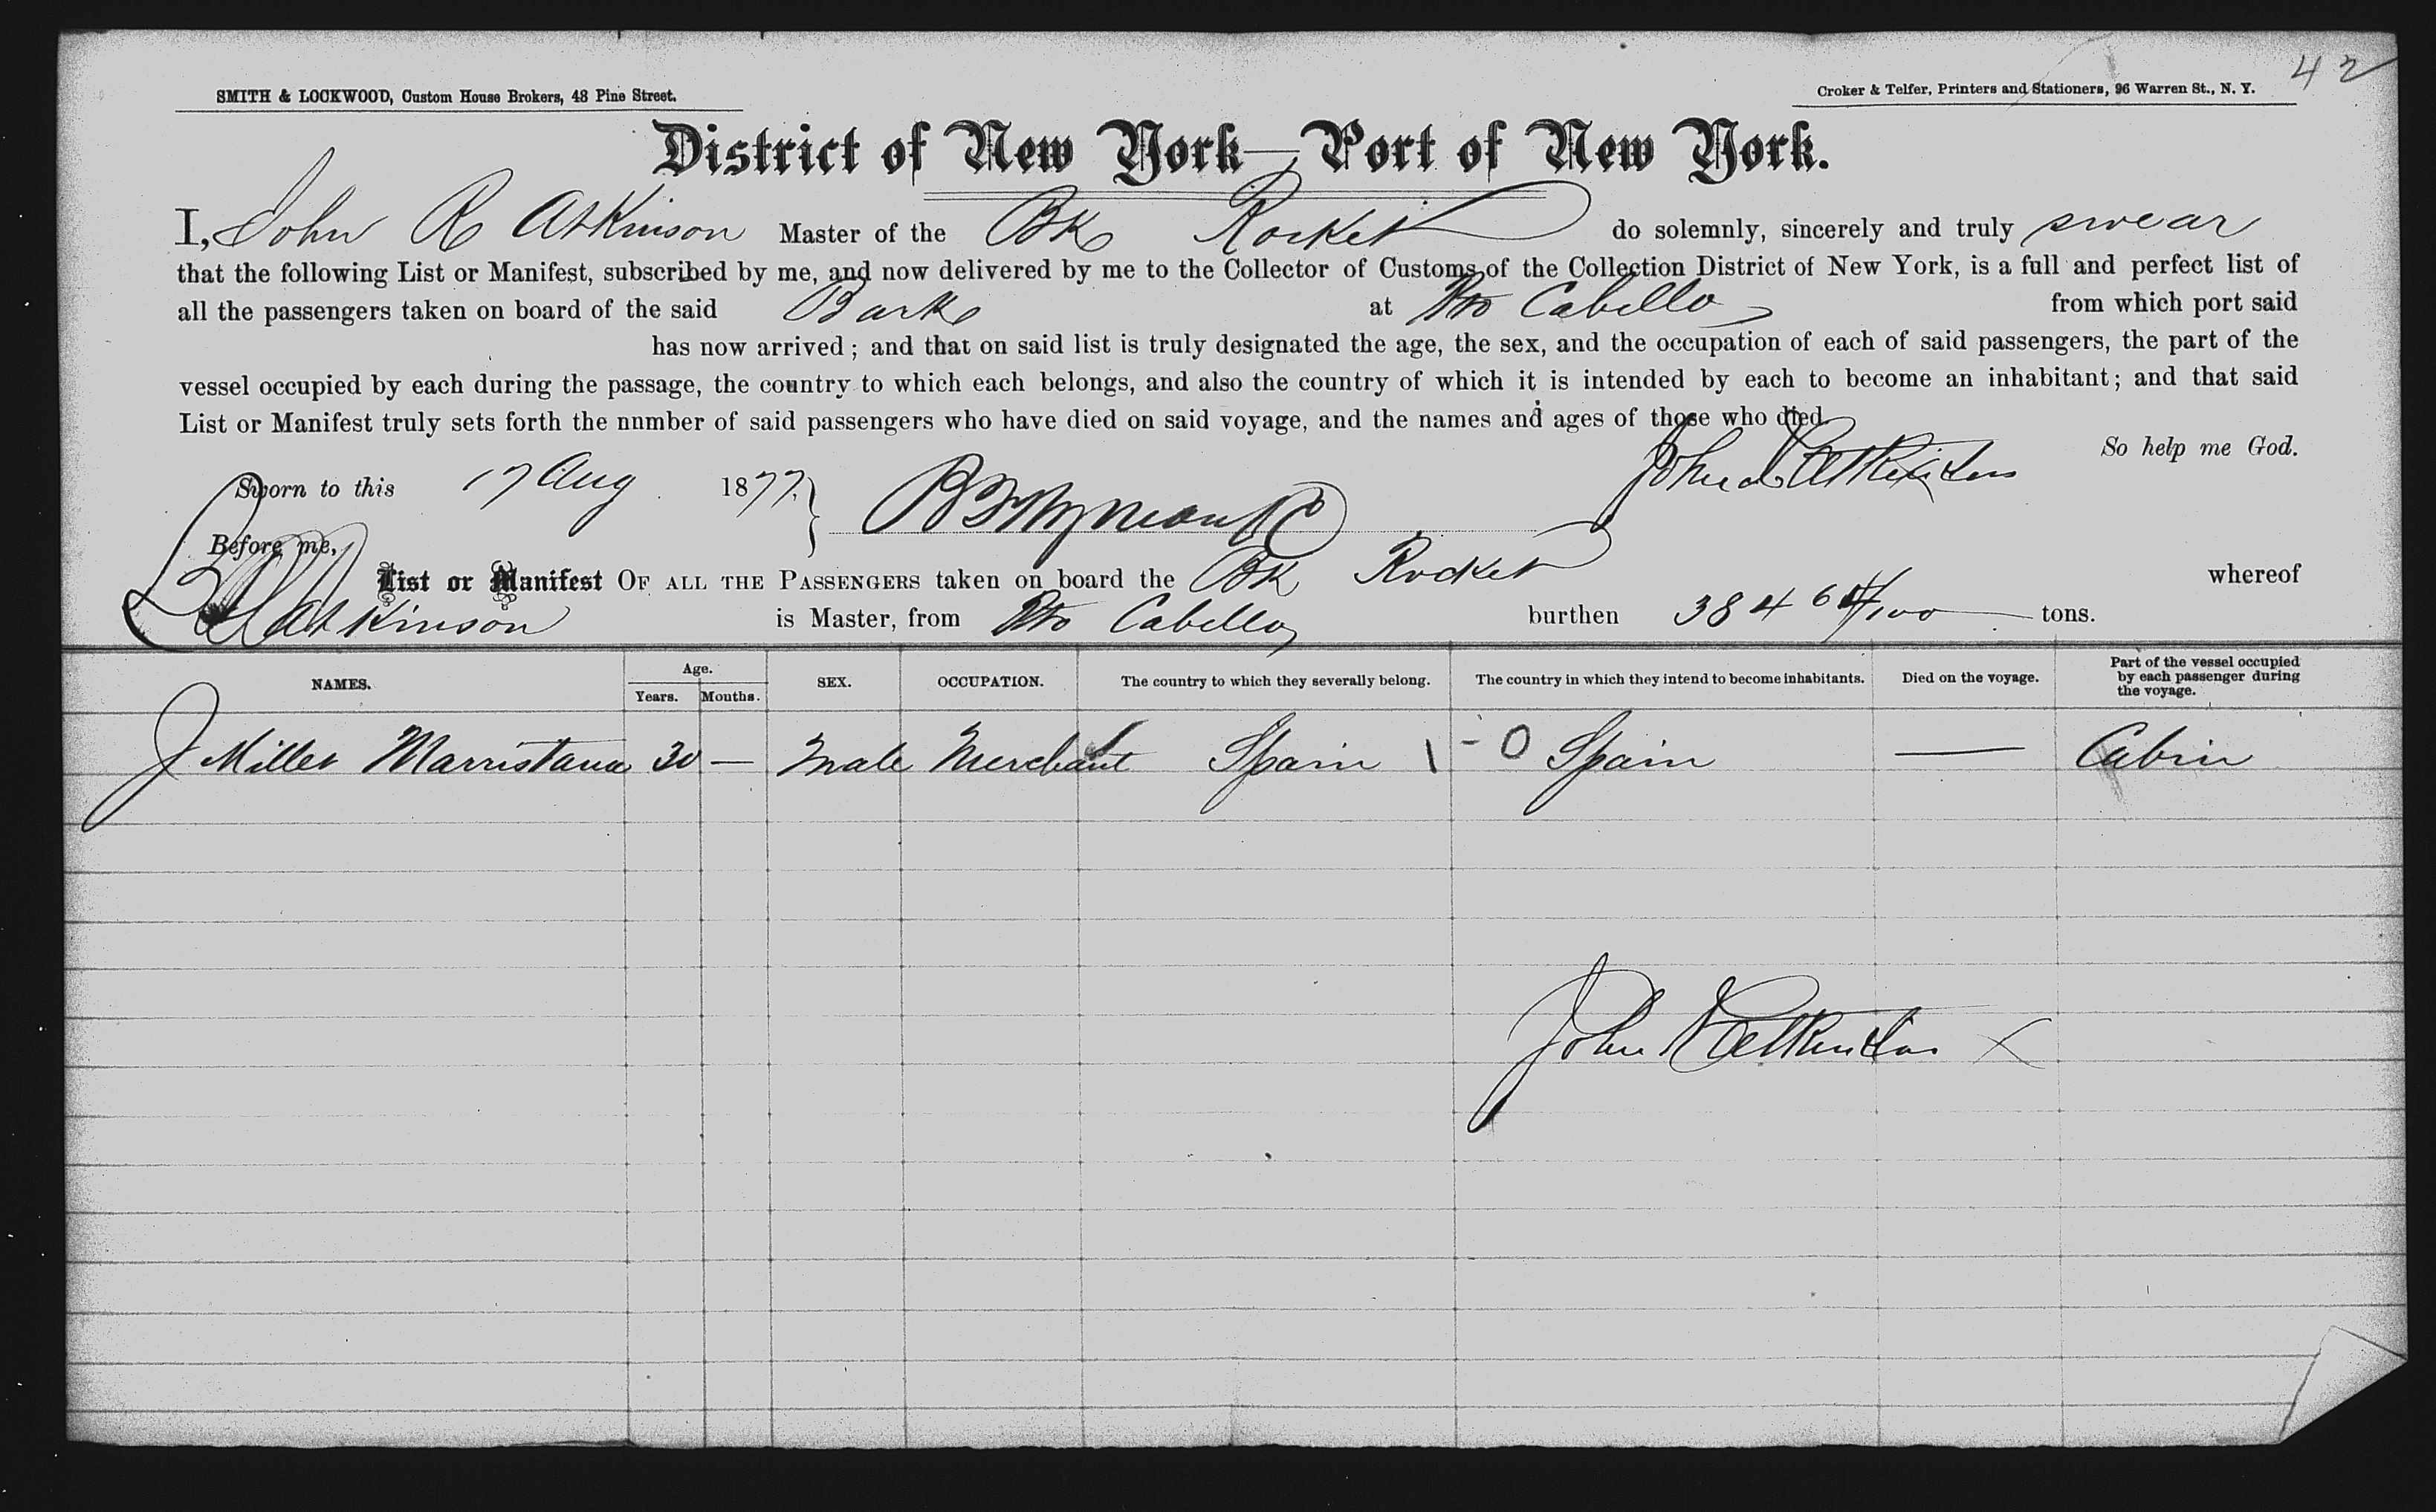 42
SMITH & LOCKWOOD, Custom House Brokers, 48 Pine Street.
Croker & Telfer, Printers and Stationers, 96 Warren St., N. Y.
District of New York—Port of New York.
I, John R Atkinson Master of the Bk Rocket do solemnly, sincerely and truly swear
that the following List or Manifest, subscribed by me, and now delivered by me to the Collector of Customs of the Collection District of New York, is a full and perfect list of
all the passengers taken on board of the said Bark at Pto Cabello from which port said
has now arrived; and that on said list is truly designated the age, the sex, and the occupation of each of said passengers, the part of the
vessel occupied by each during the passage, the country to which each belongs, and also the country of which it is intended by each to become an inhabitant; and that said
List or Manifest truly sets forth the nnmber of said passengers who have died on said voyage, and the names and ages of those who died.
So help me God.
John R Atkinson
Sworn to this 17 Aug 1877.
Before me,
List or Manifest OF ALL THE PASSENGERS taken on board the Bk Rocket whereof
Atkinson is Master, from Pto Cabello burthen 384 64/100 tons.
NAMES. Age. Years. Months. SEX. OCCUPATION. The country to which they severally belong. The country in which they intend to become inhabitants. Died on the voyage. Part of the vessel occupied by each passenger during the voyage.
J Miller 30 — Male Merchant Spain \ - 0 Spain — Cabin
John R Atkinson X